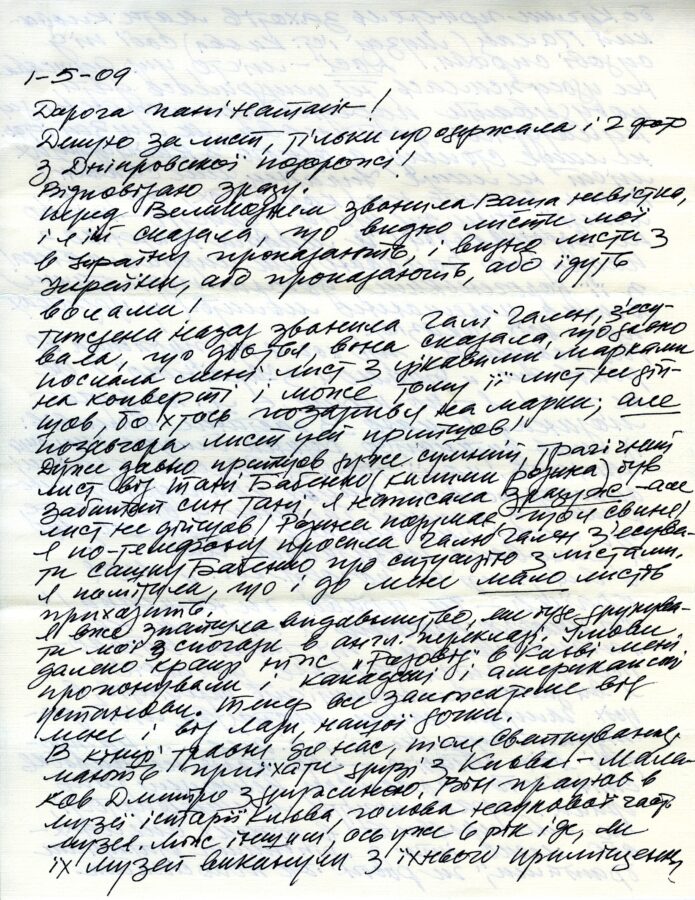 1-5-09
Дорога пані Наталк!
Дякую за лист, тільки що одержала і 2 фот
з Дніпровської подорожі!
Відповідаю зразу.
Перед Великоднем звонила Ваша невістка,
і я їй сказала, що видно листи мої
в Україну пропадають, і видно листи з
України, або пропадають, або ідуть
волами!
Тиждена назад звонила Галі Гален, з'ясу-
вала, що вона сказала, що давно
послала мені лист з цікавими марками
на конверті і може тому її лист не дій-
шов, бо хтось позарився на марки; але
позавчора лист цей прийшов!
Дуже давно прийшов дуже сумний, трагічний
лист від Тані Баб'енко був
забитий син Тані, я написала зразу же - але
лист не дійшов!
Я по-телефону просила Галю Гален з'ясува-
ти про ситуацію з листами.
Я помітила, що і до мене мало листів
приходить.
Я вже знайшла видавництво, яке буде друкува-
ти мої спогади в англ. перекладі. Умови
далеко кращі ніж в Києві мені
пропонували і канадські і американські
установи. Тепер все залежатиме від
мене і від Лари, нашої дочки.
В кінці травня до нас, після святкування,
мають приїхати друзі з Києва - Мала-
ков Дмитро з дружиною. Він працює в
музеї історії Києва, голова наукової част
музею. Між іншим, ось уже 6 рік іде, як
їх музей викинули з їхнього приміщення,